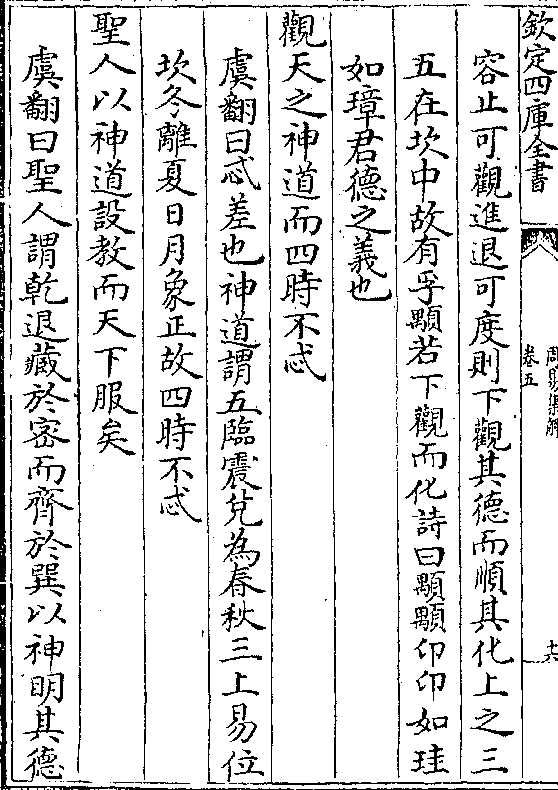 欽定四庫全書
周易集解
卷五
十六
容止可觀進退可度則下觀其德而順其化上之三
五在坎中故有孚顒若下觀而化詩曰顒顒卬卬如珪
如璋君德之義也
觀天之神道而四時不忒
虞翻曰忒差也神道謂五臨震兌為春秋三上易位
坎冬離夏日月象正故四時不忒
聖人以神道設教而天下服矣
虞翻曰聖人謂乾退藏於密而齊於巽以神明其德